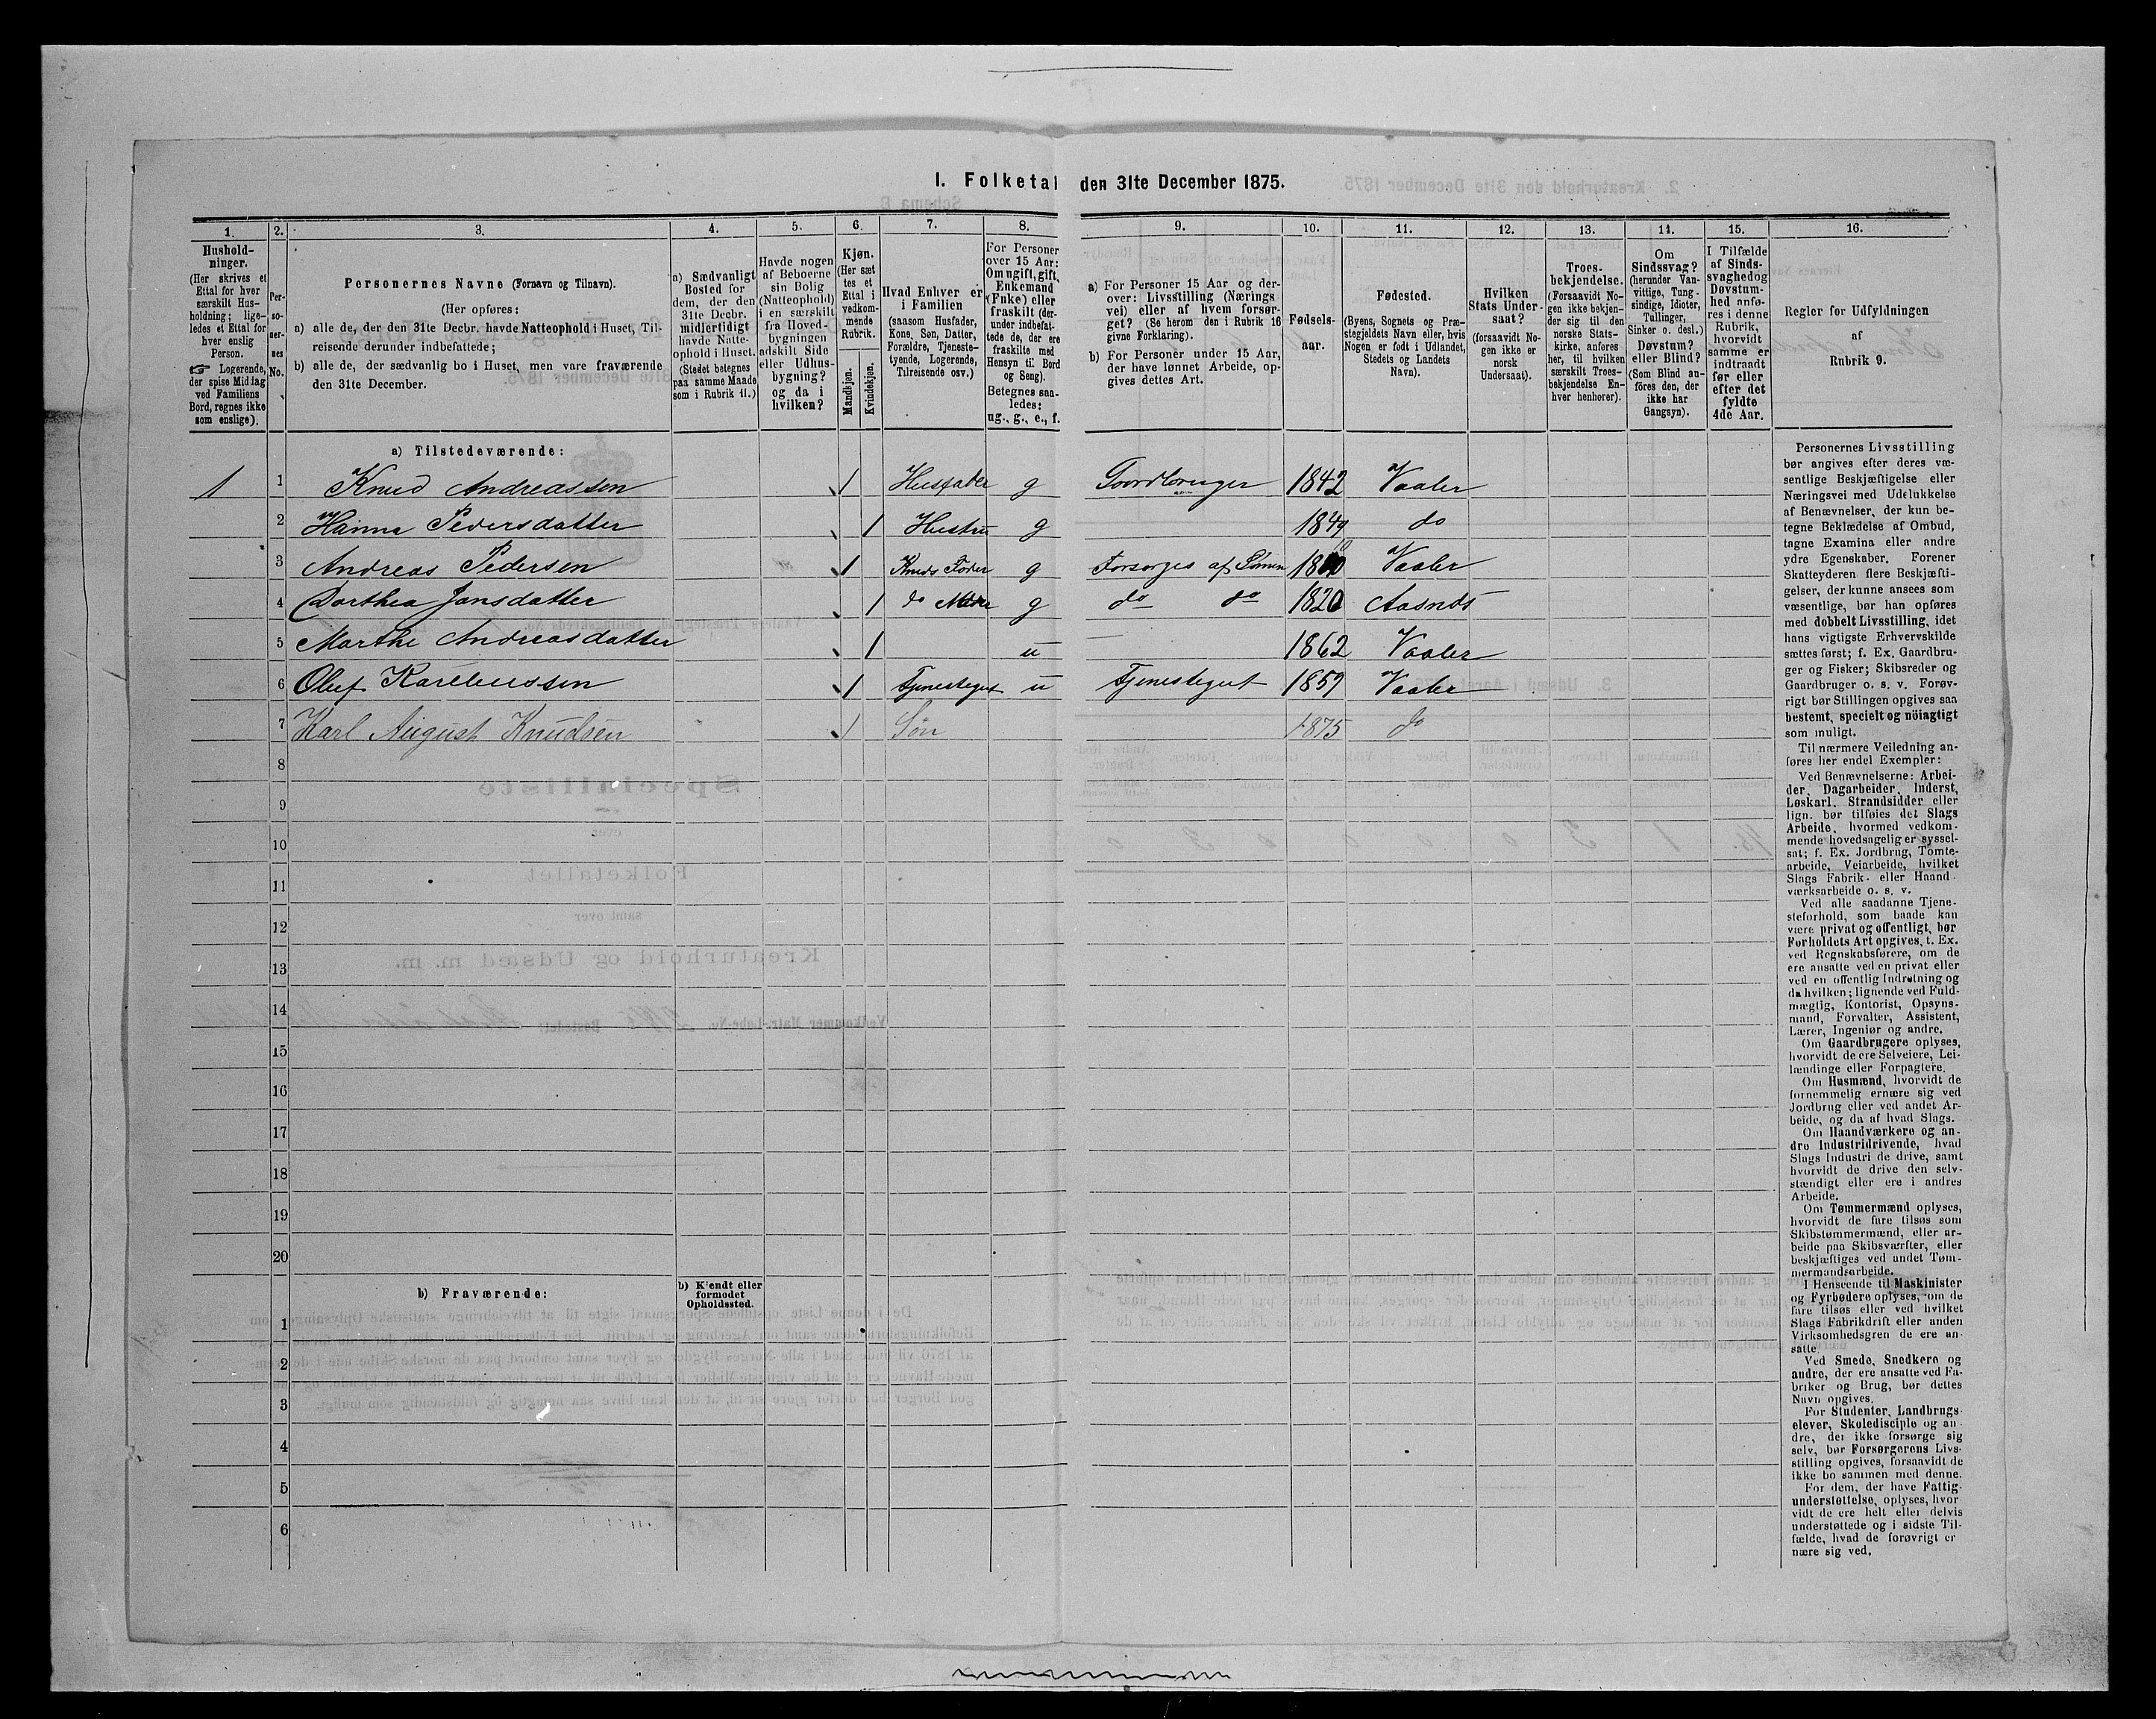 I. Folketal den 31te December 1875.
1. 2. 3. 4. 5. 6. 7. 8. 9. 10. 11. 12. 13. 14. 15. 16.
Hushold-
ninger.
(Her skrives et
Ettal for hver
særskilt Hus-
holdning; lige-
ledes et Ettal for
hver enslig
Person.
☞ Logerende,
der spise Middag
ved Familiens
Bord, regnes ikke
som enslige).
Per-
so-
ner-
nes
No.
Personernes Navne (Fornavn og Tilnavn).
(Her opføres:
a) alle de, der den 31te Decbr. havde Natteophold i Huset, Til-
reisende derunder indbefattede;
b) alle de, der sædvanlig bo i Huset, men vare fraværende
den 31te December.
a) Sædvanligt
Bosted for
dem, der den
31te Decbr.
midlertidigt
havde Natte-
ophold i Huset.
(Stedet betegnes
paa samme Maade
som i Rubrik 11.)
Havde nogen
af Beboerne
sin Bolig
(Natteophold)
i en særskilt
fra Hoved-
bygningen
adskilt Side
eller Udhus-
bygning?
og da i
hvilken?
Kjøn.
(Her sæt
tes et
Ettal i
vedkom-
mende
Rubrik.
Mandkjøn.
Kvindekjøn.
Hvad Enhver er
i Familien
(saasom Husfader,
Kone, Søn, Datter,
Forældre, Tjeneste-
tyende, Logerende,
Tilreisende osv.)
For Personer
over 15 Aar:
Om ugift, gift,
Enkemand
(Enke) eller
fraskilt (der-
under indbefat-
tede de, der ere
fraskilte med
Hensyn til Bord
og Seng).
Betegnes saa-
ledes:
ug., g., e., f.
a) For Personer 15 Aar og der-
over: Livsstilling (Nærings
vei) eller af hvem forsør-
get? (Se herom den i Rubrik 16
givne Forklaring).
b) For Personer under 15 Aar,
der have lønnet Arbeide, op-
gives dettes Art.
Fødsels-
aar.
Fødested.
(Byens, Sognets og Præ-
stegjeldets Navn eller, hvis
Nogen er født i Udlandet,
Stedets og Landets
Navn).
Hvilken
Stats Under-
saat?
(forsaavidt No-
gen ikke er
norsk
Undersaat).
Troes-
bekjendelse.
(Forsaavidt No-
gen ikke bekjen-
der sig til den
norske Stats-
kirke, anføres
her, til hvilken
særskilt Troes-
bekjendelse En-
hver henhører).
Om
Sindssvag?
(herunder Van-
vittige, Tung-
sindige, Idioter,
Tullinger,
Sinker o. desl.)
Døvstum?
eller Blind?
(Som Blind an-
føres den, der
ikke har
Gangsyn).
I Tilfælde
af Sinds-
svaghed og
Døvstum-
hed anfø-
res i denne
Rubrik,
hvorvidt
samme er
indtraadt
før eller
efter det
fyldte
4de Aar.
Regler for Udfyldningen
af
Rubrik 9.
a) Tilstedeværende:
1 1 Knud Andreassen 1 Husfader g Gaardbruger 1842 Vaaler
2 Hanna Pedersdatter 1 Hustru g 1849 do
3 Andreas Pedersen 1 Knuds Fader g Forsørges af Sønnen Vaaler
4 Dorthea Jonsdatter 1 do Moder g do do 1820 Aasnes
5 Marthe Andreasdatter 1 u 1862 Vaaler
6 Oluf Karelíussen 1 Tjenestegut u Tjenestegut 1859 Vaaler
7 Karl August Knudsen 1 Søn 1875 do
8
9
10
11
12
13
14
15
16
17
18
19
20
b) Fraværende:
b) Kjendt eller
formodet
Opholdssted.
1
2
3
4
5
6
Personernes Livsstilling
bør angives efter deres væ-
sentlige Beskjæftigelse eller
Næringsvei med Udelukkelse
af Benævnelser, der kun be-
tegne Beklædelse af Ombud,
tagne Examina eller andre
ydre Egenskaber. Forener
Skatteyderen flere Beskjæfti-
gelser, der kunne ansees som
væsentlige, bør han opføres
med dobbelt Livsstilling, idet
hans vigtigste Erhvervskilde
sættes først; f. Ex. Gaardbru-
ger og Fisker; Skibsreder og
Gaardbruger o. s. v. Forøv-
rigt bør Stillingen opgives saa
bestemt, specielt og nöiagtigt
som muligt.
Til nærmere Veiledning an-
føres her endel Exempler:
Ved Benævnelserne: Arbei-
der, Dagarbeider, Inderst,
Løskarl, Strandsidder eller
lign. bør tilføies det Slags
Arbeide, hvormed vedkom-
mende hovedsagelig er syssel-
sat; f. Ex. Jordbrug, Tomte-
arbeide, Veiarbeide, hvilket
Slags Fabrik- eller Haand-
værksarbeide o. s. v.
Ved alle saadanne Tjene-
steforhold, som baade kan
være privat og offentligt, bør
Forholdets Art opgives, t. Ex.
ved Regnskabsførere, om de
ere ansatte ved en privat eller
ved en offentlig Indretning og
da hvilken; lignende ved Fuld-
mægtig, Kontorist, Opsyns-
mand, Forvalter, Assistent,
Lærer, Ingeniør og andre.
Om Gaardbrugere oplyses,
hvorvidt de ere Selveiere, Lei-
lændinge eller Forpagtere.
Om Husmænd, hvorvidt de
fornemmelig ernære sig ved
Jordbrug eller ved andet Ar-
beide, og da af hvad Slags.
Om Haandværkere og an-
dre Industridrivende, hvad
Slags Industri de drive, samt
hvorvidt de drive den selv-
stændigt eller ere i andres
Arbeide.
Om Tømmermænd oplyses,
hvorvidt de fare tilsøs som
Skibstømmermænd, eller ar-
beide paa Skibsværfter, eller
beskjæftiges ved andet Tøm-
mermandsarbeide.
I Henseende til Maskinister
og Fyrbødere oplyses, om de
fare tilsøs eller ved hvilket
Slags Fabrikdrift eller anden
Virksomhedsgren de ere an-
satte.
Ved Smede, Snedkere og
andre, der ere ansatte ved Fa-
briker og Brug, bør dettes
Navn opgives.
For Studenter, Landbrugs-
elever, Skoledisciple og an-
dre, der ikke forsørge sig
selv, bør Forsørgerens Livs-
stilling opgives, forsaavidt de
ikke bo sammen med denne.
For dem, der have Fattig-
understøttelse, oplyses, hvor-
vidt de ere helt eller delvis
understøttede og i sidste Til-
fælde, hvad de forøvrigt er-
nære sig ved.